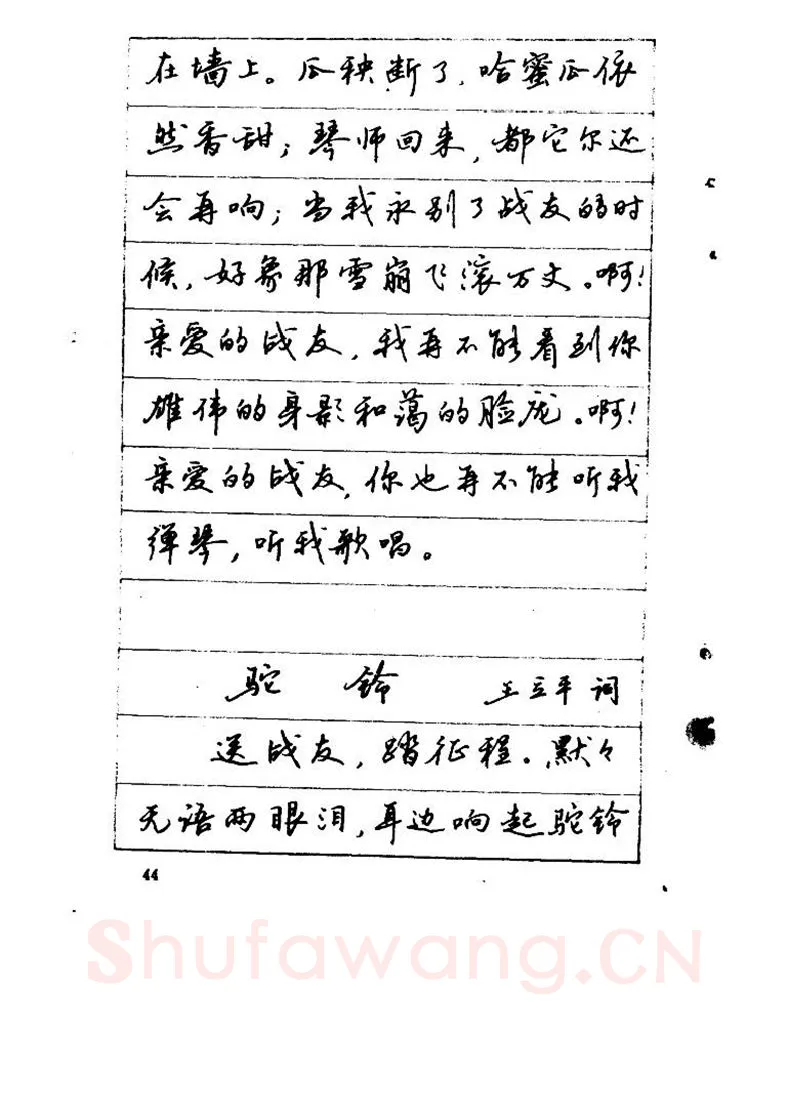 在墙上。瓜秧断了，哈蜜瓜依
然香甜；琴师回来，都它尔还
会再响；当我永别了战友的时
候，好象那雪崩飞滚万丈。啊！
亲爱的战友，我再不能看到你
雄伟的身影和蔼的脸庞。啊！
亲爱的战友，你也再不能听我
弹琴，听我歌唱。
驼 铃 王立平 词
送战友，踏征程。默々
无语两眼泪，耳边响起驼铃
44
Shufawang.CN